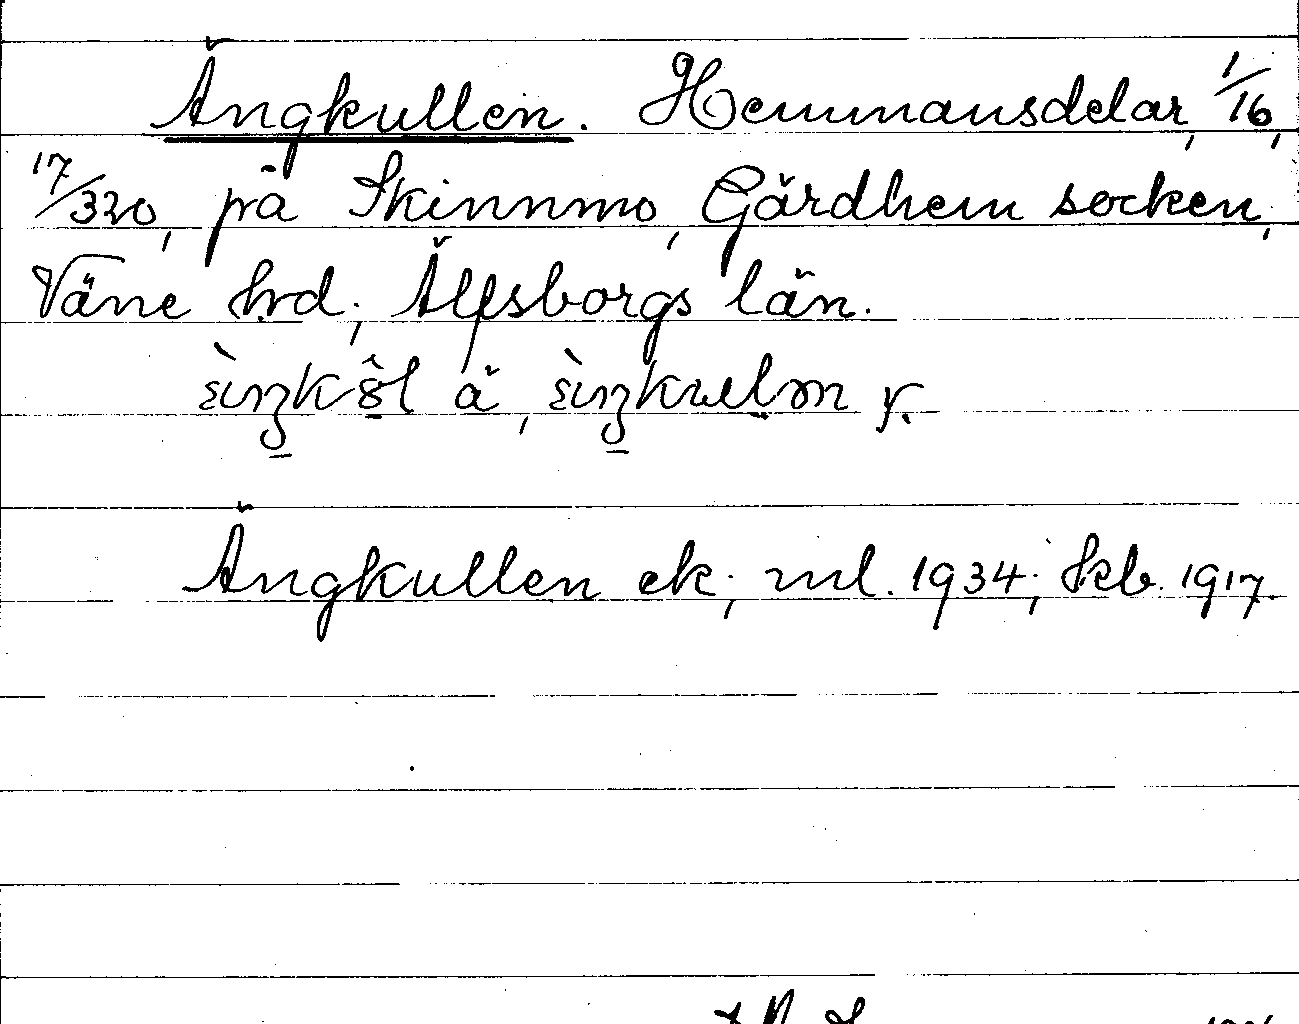 Ängkullen. Hemmansdelar, 1/16,
17/320, på Skinnmo, Gärdhem socken,
Väne hrd; Älfsborgs län.
ä, y.
Ängkullen ek; ml. 1934; skb. 1917.